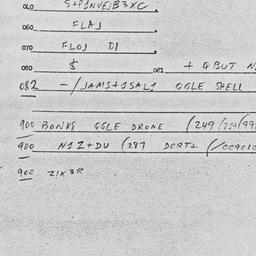 040 S+PINVEJB3XC
060 FLAJ
070 FLOJ DI
080 $ 081 + QBUT N
082 -/JAMS+1SAL1 QGLE SHELL
900 BONUS QGLE DRONE (249/254/99
900 N1Z+DU (287 DORT+ (/009010
900 Z1X3R